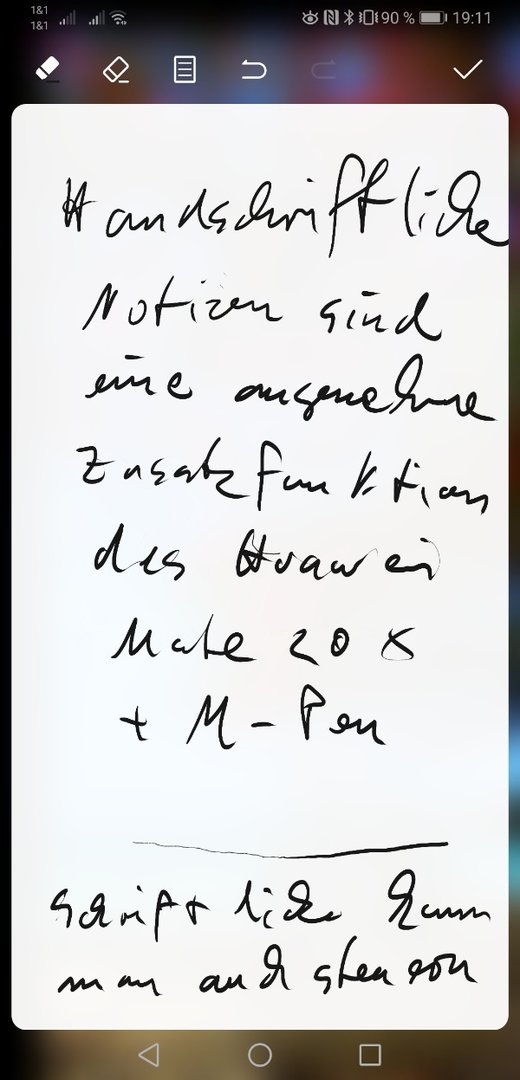 1&1
1&1
90 %
19:11
Handschriftliche
Notizen sind
eine angenehme
Zusatzfunktion
des Huawei
Mate 20 X
+ M-Pen
Schriftliche kann
man auch